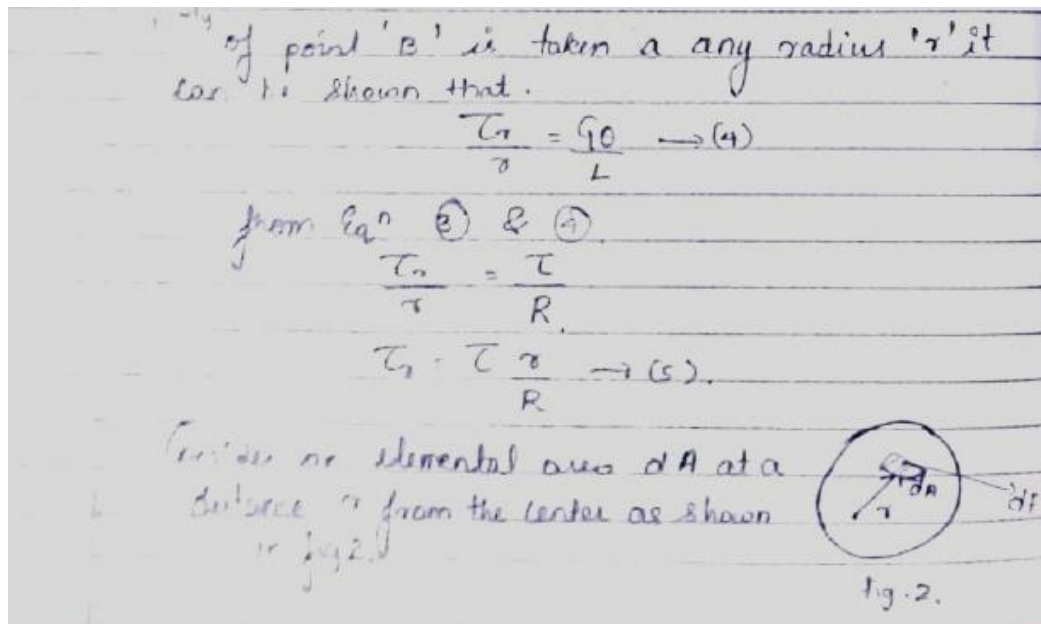 of point 'B' is taken a any radius 'r' it
can be shown that.
τr / r = Gθ / L → (4)
from Eqn ③ & ④.
τr / r = τ / R.
τr = τ r / R → (5).
Consider an elemental area dA at a
distance r from the center as shown
in fig 2.
dA
r
fig. 2.